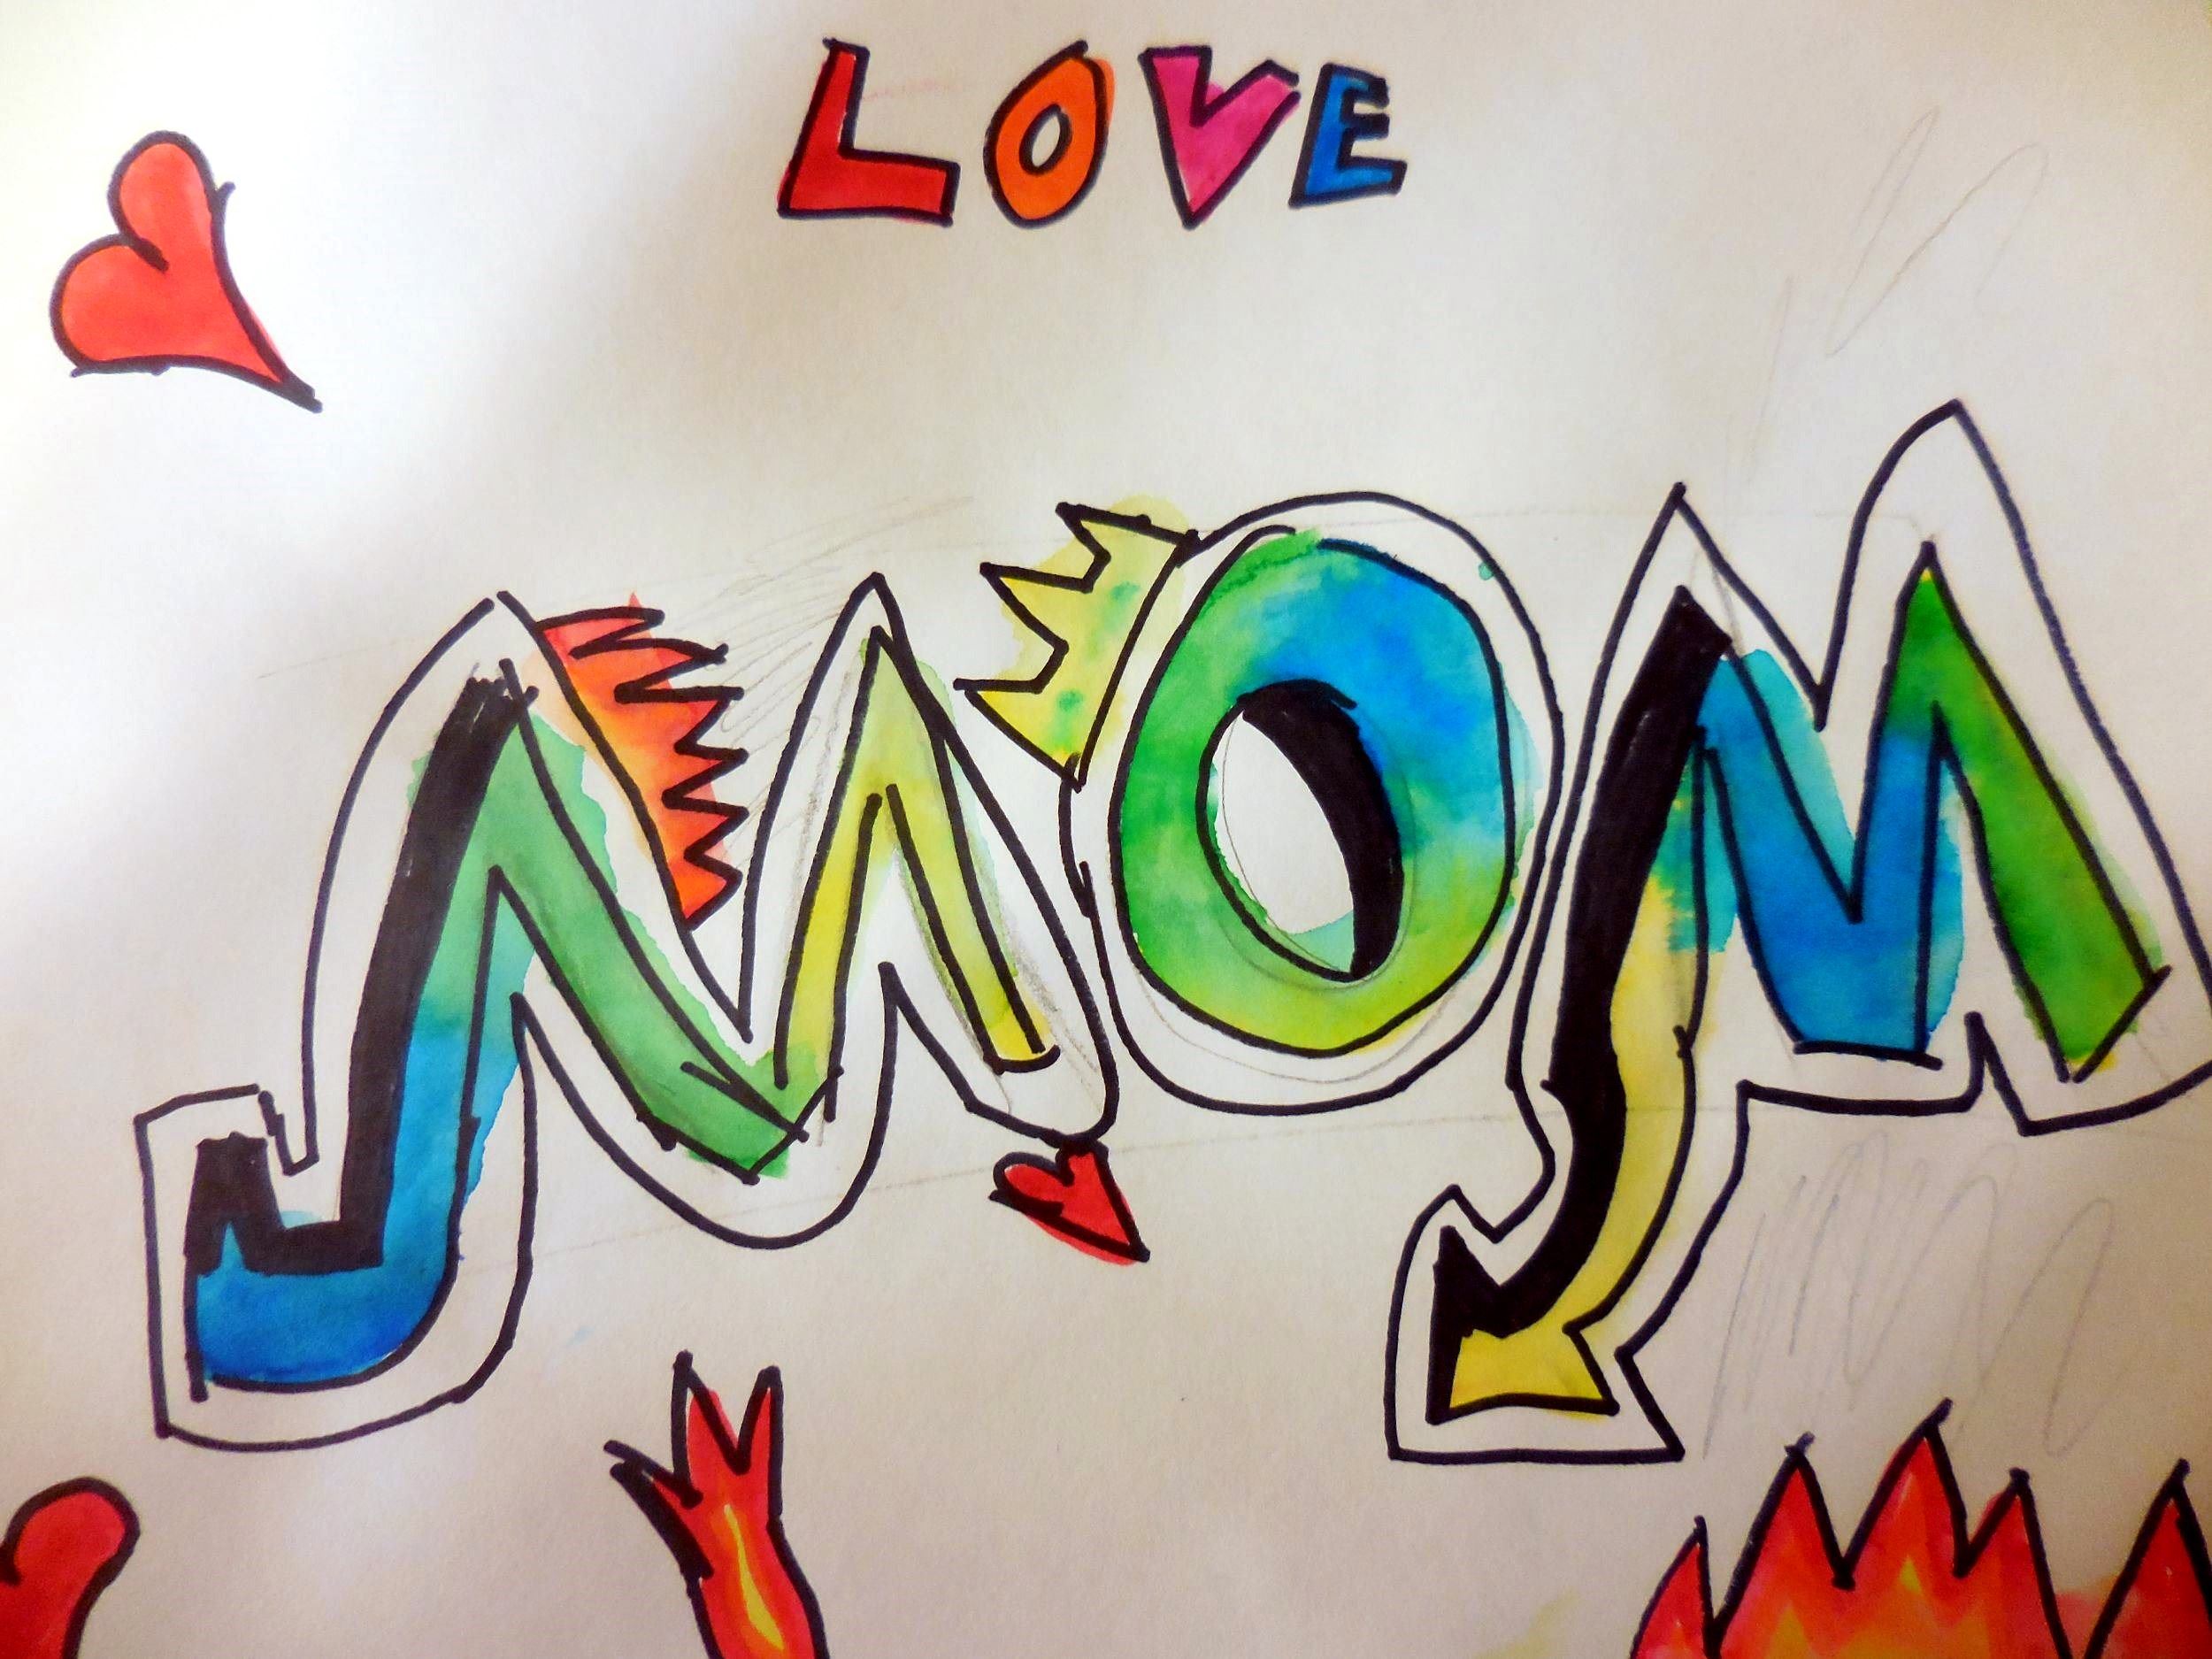 LOVE
MOM